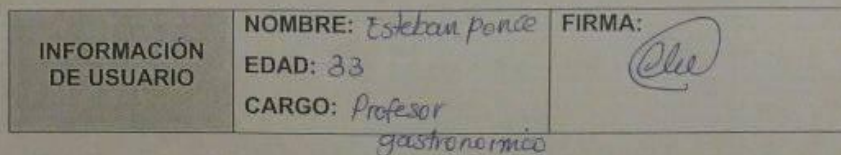 INFORMACIÓN
DE USUARIO
NOMBRE: Esteban Ponce
EDAD: 33
CARGO: Profesor
gastronomico
FIRMA: